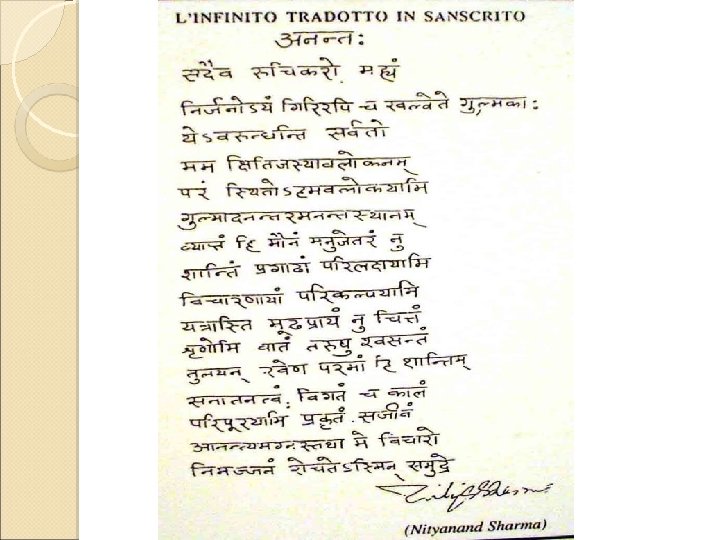 L'INFINITO TRADOTTO IN SANSCRITO
अनन्तः
सदैव रुचिकरो मह्यं
निर्जनोऽयं गिरिरपि च खल्वेते गुल्मकाः
येऽवरुन्धन्ति सर्वतो
मम क्षितिजस्यावलोकनम्
परं स्थितोऽहमवलोकयामि
गुल्मादनन्तरमनन्तस्थानम्
व्याप्तं हि मौनं मनुजेतरं नु
शान्तिं प्रगाढां परिलक्षयामि
विचारणायां परिकल्पयामि
यत्रास्ति मूढप्रायं नु चित्तं
शृणोमि वातं तरुषु श्वसन्तं
तुलयन् रवेण परमां हि शान्तिम्
सनातनत्वं विगतं च कालं
परिपूरयामि प्रकृतं सजीवं
आनन्त्यमग्नस्तथा मे विचारो
निमज्जनं रोचतेऽस्मिन् समुद्रे
(Nityanand Sharma)